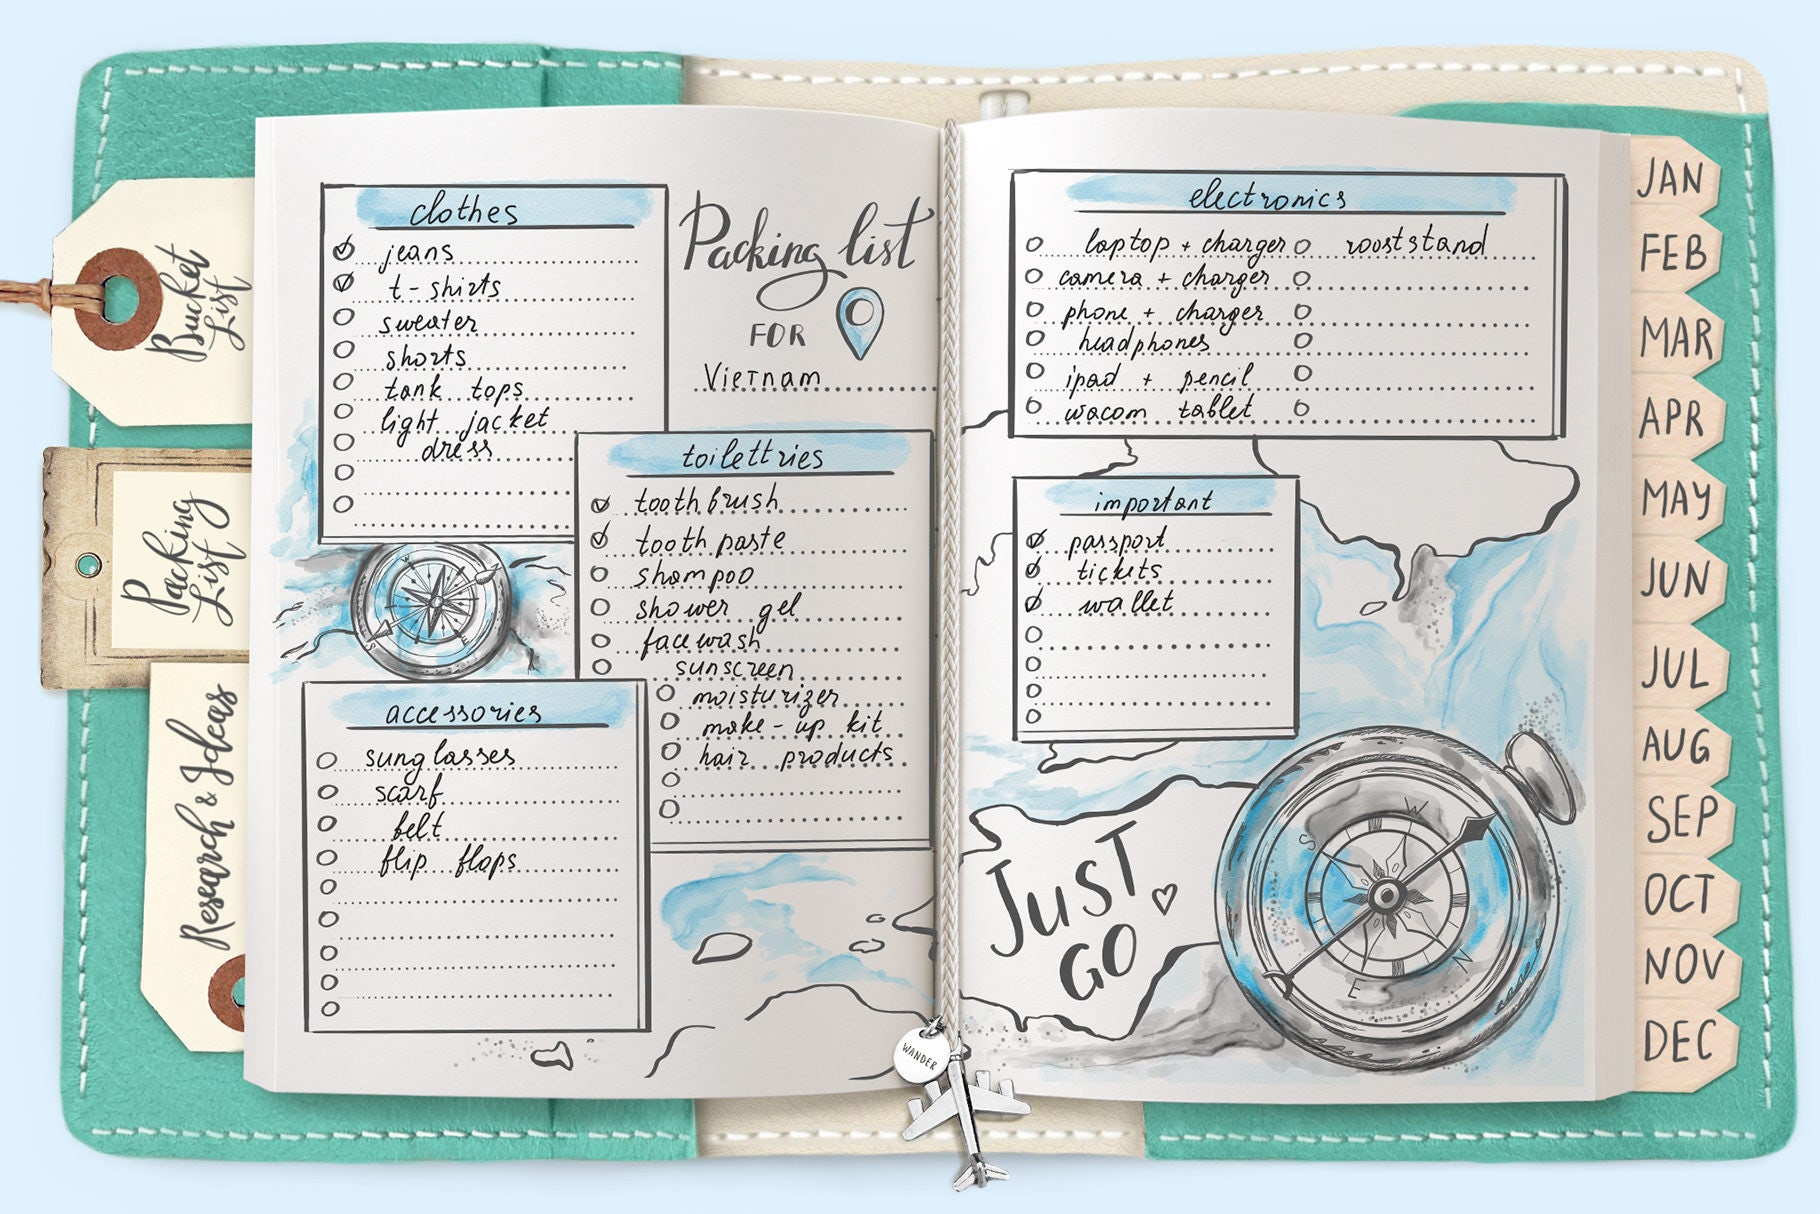 Bucket
List
Packing
List
Research & Ideas
clothes
jeans
t-shirts
sweater
shorts
tank tops
light jacket
dress
Packing list
FOR
Vietnam
toilettries
tooth brush
tooth paste
shampoo
shower gel
face wash
sunscreen
moisturizer
make-up kit
hair products
accessories
sunglasses
scarf
belt
flip flops
electronics
laptop + charger
rooststand
camera + charger
phone + charger
headphones
ipad + pencil
wacom tablet
important
passport
tickets
wallet
JUST
GO
S
W
N
E
WANDER
JAN
FEB
MAR
APR
MAY
JUN
JUL
AUG
SEP
OCT
NOV
DEC